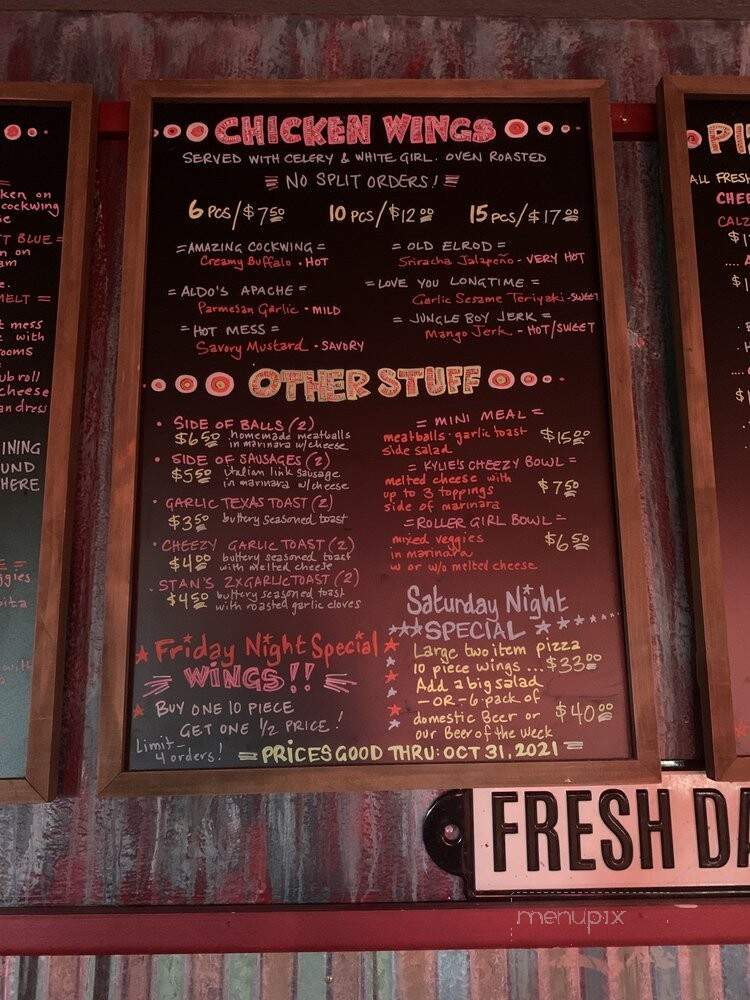 CHICKEN WINGS
SERVED WITH CELERY & WHITE GIRL. OVEN ROASTED
NO SPLIT ORDERS!
6 PCS/$7.50 10 PCS/$12.00 15 PCS/$17.00
=AMAZING COCKWING=
Creamy Buffalo • HOT
= ALDO'S APACHE =
Parmesan Garlic • MILD
= HOT MESS =
Savory Mustard • SAVORY
= OLD ELROD =
Sriracha Jalapeño - VERY HOT
=LOVE YOU LONGTIME=
Garlic Sesame Teriyaki - SWEET
= JUNGLE BOY JERK =
Mango Jerk - HOT/SWEET
OTHER STUFF
• SIDE OF BALLS (2)
$6.50 homemade meatballs
in marinara w/cheese
• SIDE OF SAUSAGES (2)
$5.50 italian link sausage
in marinara w/cheese
• GARLIC TEXAS TOAST (2)
$3.50 buttery seasoned toast
• CHEEZY GARLIC TOAST (2)
$4.00 buttery seasoned toast
with melted cheese
STAN'S 2XGARLIC TOAST (2)
$4.50 buttery seasoned toast
with roasted garlic cloves
= MINI MEAL =
meatballs • garlic toast
side salad
$15.00
= KYLIE'S CHEEZY BOWL =
melted cheese with
up to 3 toppings
side of marinara
$7.50
=ROLLER GIRL BOWL=
mixed veggies
in marinara
w or w/o melted cheese
$6.50
Friday Night Special
WINGS!!
BUY ONE 10 PIECE
GET ONE 1/2 PRICE!
Limit-
4 orders!
Saturday Night
SPECIAL
Large two item pizza
10 piece wings ... $33.00
Add a big salad
-OR- 6-pack of
domestic Beer or
our Beer of the Week
$40.00
=PRICES GOOD THRU: OCT 31, 2021=
ken on
cockwing
T BLUE=
n on
MELT =
t mess
with
ooms
ub roll
cheese
an dress
INING
UND
HERE
ggies
pita
with
ALL FRESH
CHEE
CALZ
FRESH DA
menupix